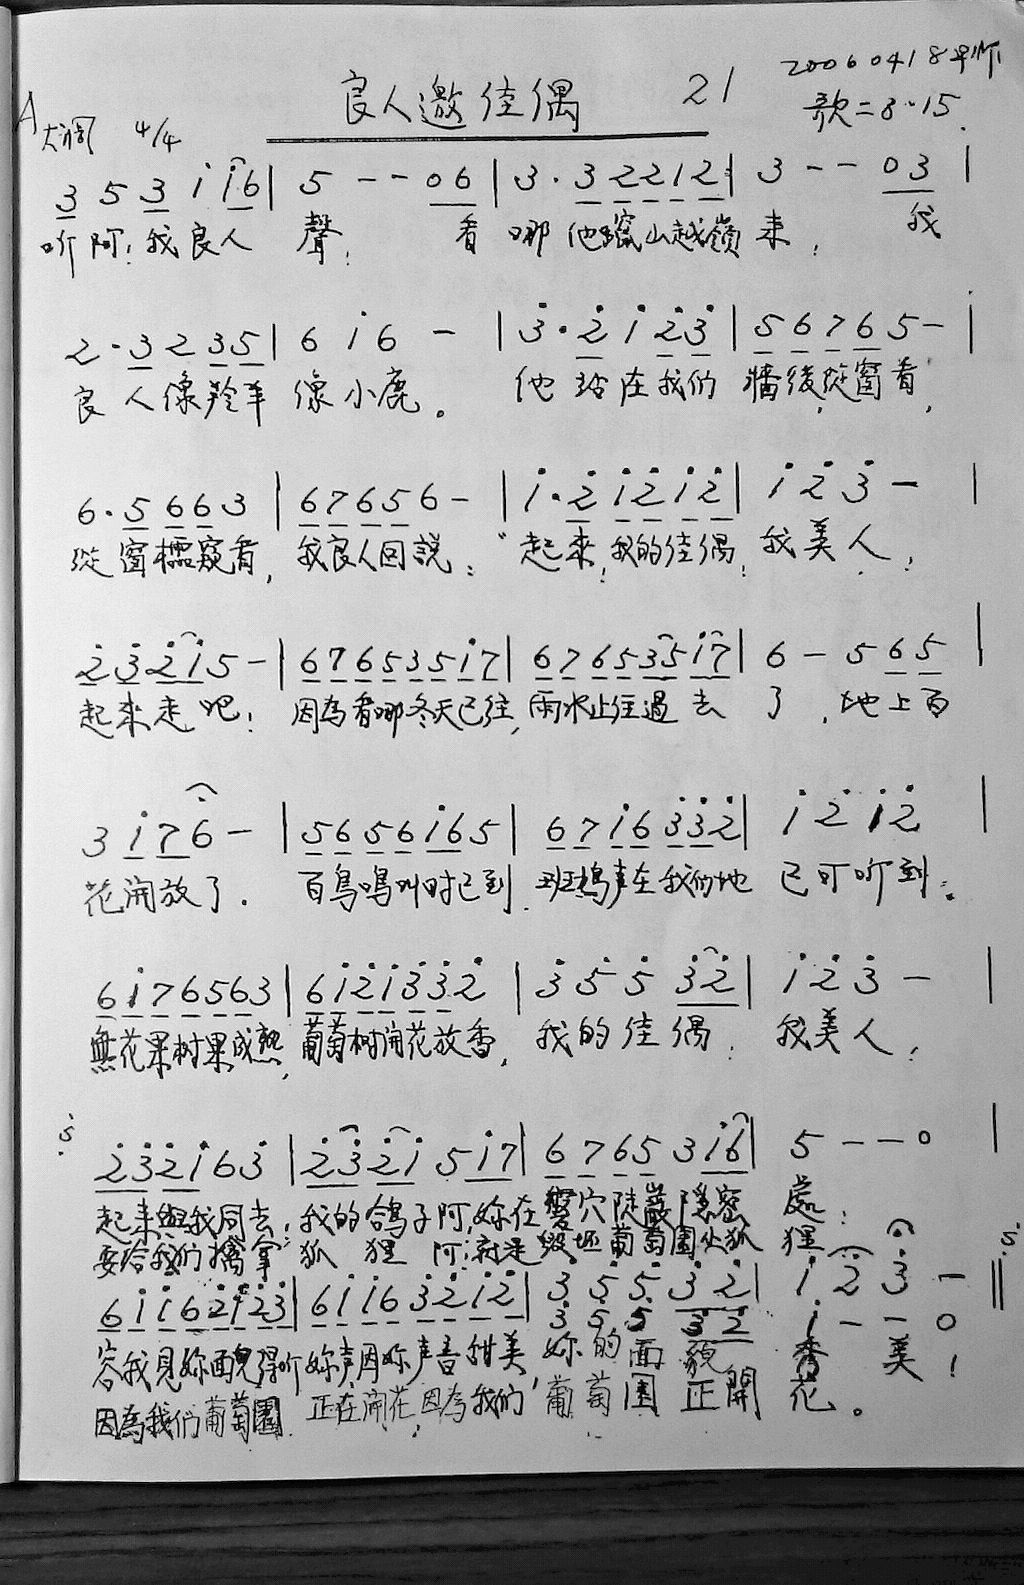 良人邀佳偶 21 20060418
歌二8-15.
A大调 4/4
3 5 3 i i6 | 5 - - 0 6 | 3 · 3 2 2 1 2 | 3 - - 0 3 |
听阿!我良人 聲! 看哪他躥山越嶺来! 我
2 · 3 2 3 5 | 6 i 6 - | 3̇ · 2̇ i 2̇ 3̇ | 5 6 7 6 5 - |
良人像羚羊 像小鹿。 他站在我们 牆後從窗看,
6 · 5 6 6 3 | 6 7 6 5 6 - | i · 2̇ i 2̇ i 2̇ | i 2̇ 3̇ - |
從窗櫺窺看, 我良人回説:“起來!我的佳偶, 我美人,
2̇ 3̇ 2̇ i 5 - | 6 7 6 5 3 5 i 7 | 6 7 6 5 3 5 i 7 | 6 - 5 6 5 |
起来走吧! 因為看哪冬天已往,雨水止住過去 了,地上百
3 i 7 6 - | 5 6 5 6 i 6 5 | 6 7 i 6 3̇ 3̇ 2̇ | i 2̇ i 2̇ |
花開放了. 百鳥鳴叫时已到.班鳩声在我们地 已可听到:
6 i 7 6 5 6 3 | 6 i 2̇ i 3̇ 3̇ 2̇ | 3̇ 5̇ 5̇ 3̇ 2̇ | i 2̇ 3̇ - |
無花果树果成熟,葡萄树開花放香,我的佳偶, 我美人,
2̇ 3̇ 2̇ i 6 3̇ | 2̇ 3̇ 2̇ i 5 i 7 | 6 7 6 5 3 i 6 | 5 - - 0 |
起来與我同去!我的鴿子阿,妳在磐穴陡巖隱密 處!
要给我们擒拿 狐狸阿!就是毁坯葡萄園小狐 狸
6 i i 6 2̇ i 2̇ 3̇ | 6 i i 6 3̇ 2̇ i 2̇ | 3̇ 5̇ 5̇ 3̇ 2̇ | i 2̇ 3̇ - ‖
3̇ 5̇ 5̇ 3̇ 2̇ i - - 0
容我見妳面兒得听妳声,因妳声音甜美,妳的面貌 秀美!
因為我们葡萄園 正在開花,因為我们葡萄園正開花。